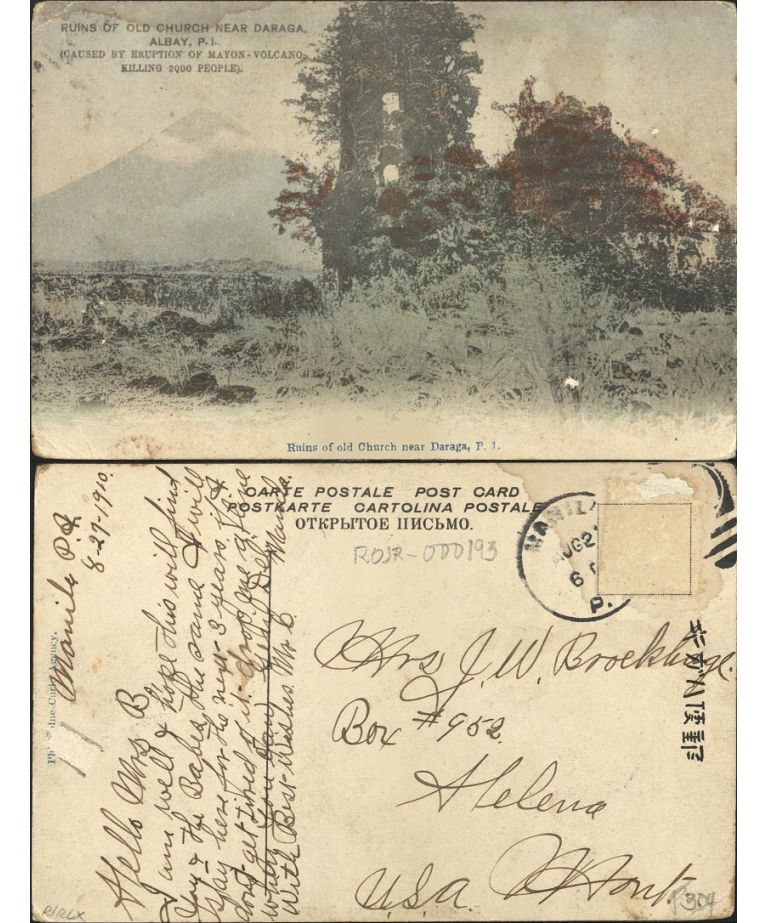 RUINS OF OLD CHURCH NEAR DARAGA,
ALBAY, P. I.
(CAUSED BY ERUPTION OF MAYON-VOLCANO,
KILLING 2000 PEOPLE).
Ruins of old Church near Daraga, P. I.
CARTE POSTALE POST CARD
POSTKARTE CARTOLINA POSTALE
ОТКРЫТОЕ ПИСЬМО.
ROJR-000193
MANIL
AUG 2
6
P.
Manila P.I.
8-27-1910.
Hello Mrs. B
I am well & hope this will find
you & the Babies the same I will
stay here for the next 3 years, if I
dont get tired of it. drop me a line
when you can,
With Best Wishes. Manila
Mrs J. W. Brockhage.
Box #952.
Helena
USA. Mont.
Agency.
R/RLX
304